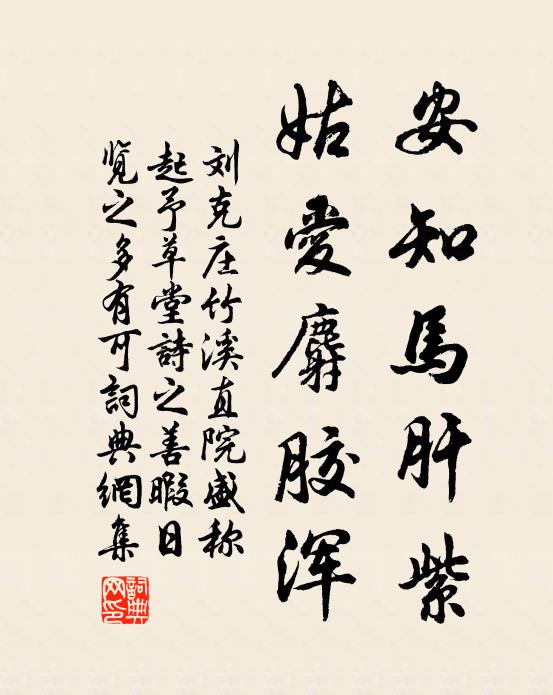 安知馬肝紫
姑愛麝胶浑
刘克庄竹溪直院盛称
起予草堂詩之善暇日
览之多有可詞典網集
詞典網印